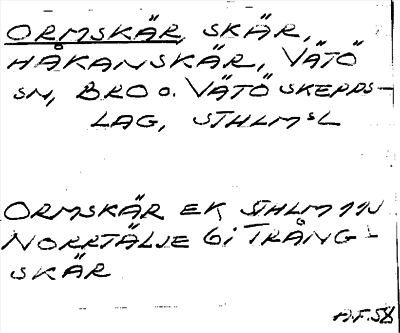 ORMSKÄR, SKÄR,
HÅKANSKÄR, VÄTÖ
SN, BRO O. VÄTÖ SKEPPS-
LAG, STHLMSL
ORMSKÄR EK STHLM 11J
NORRTÄLJE 6i TRÅNG-
SKÄR
A.F. 58